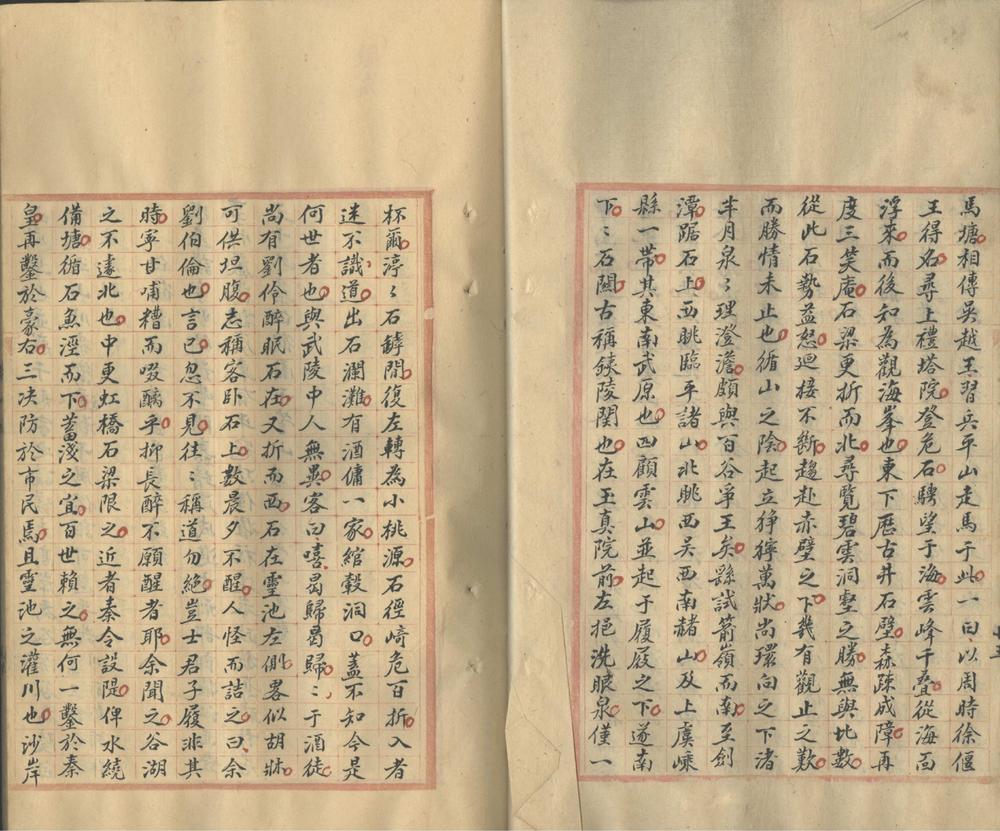 馬塘相傳吳越王習兵平山走馬于此一曰以周時徐偃
王得名尋上禮塔院登危石騁望于海雲峰千叠從海面
浮來而後知為觀海峯也東下歷古井石壁森疎成障再
度三笑庵石梁更折而北尋覽碧雲洞壑之勝無與比數
從此石勢益怒迴接不斷趨赴赤壁之下幾有觀止之歎
而勝情未止也循山之陰起立猙獰萬狀尚環向之下渚
半月泉〻理澄澹頗與百谷爭王矣縣試箭嶺而南至劍
潭踞石上西眺臨平諸山北眺西吳西南赭山及上虞嵊
縣一帶其東南武原也四顧雲山並起于履屐之下遂南
下〻石闕古稱鋏陵閏也在玉真院前左挹洗眼泉僅一
杯爾渟〻石罅間復左轉為小桃源石徑崎危百折入者
迷不識道出石瀾灘有酒傭一家綰轂洞口蓋不知今是
何世者也與武陵中人無異客曰嘻曷歸曷歸〻于酒徒
尚有劉伶醉眠石在又折而西石在靈池左側畧似胡牀
可供坦腹志稱客卧石上數晨夕不醒人怪而詰之曰余
劉伯倫也言已忽不見往〻稱道勿絕豈士君子履非其
時寧甘哺糟而啜醨乎抑長醉不願醒者耶余聞之谷湖
之不遠北也中更虹橋石梁限之近者秦令設隄俾水繞
備塘循石魚涇而下蓄淺之宜百世賴之無何一鑿於秦
皇再鑿於豪右三决防於市民焉且靈池之灌川也沙岸